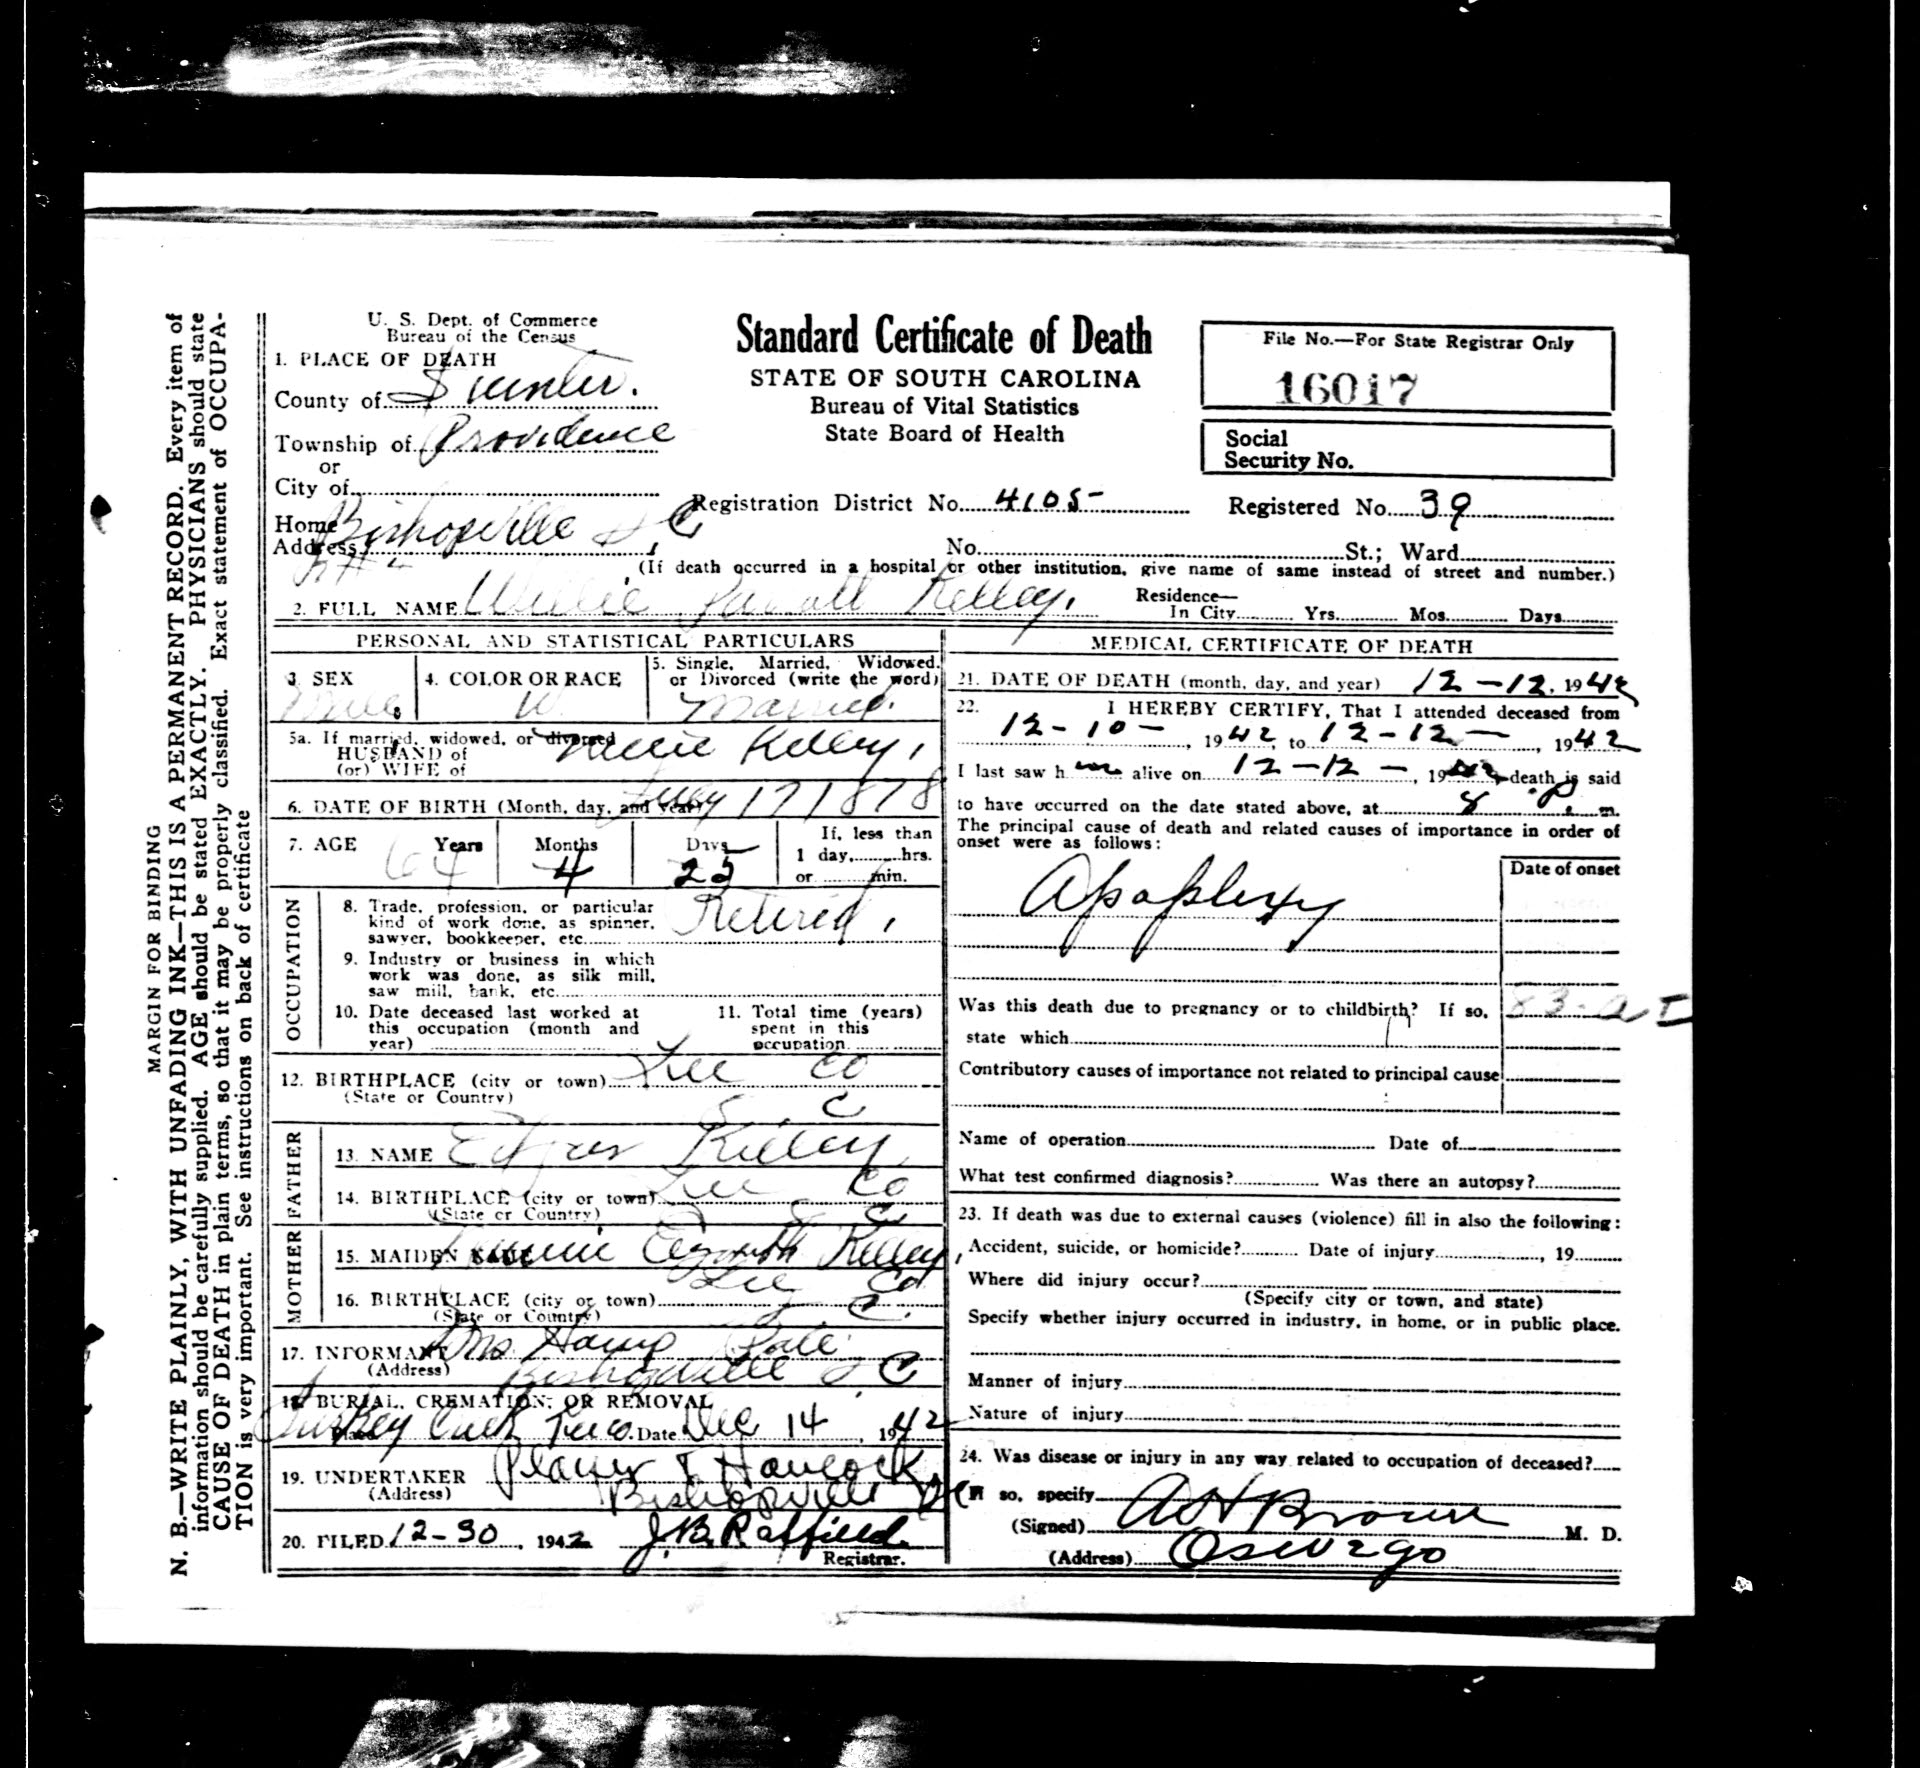 U. S. Dept. of Commerce
Bureau of the Census
1. PLACE OF DEATH
County of Sumter.
Township of Providence
or
City of
Home Address Bishopville S C
Standard Certificate of Death
STATE OF SOUTH CAROLINA
Bureau of Vital Statistics
State Board of Health
File No.—For State Registrar Only
16017
Social
Security No.
Registration District No. 4105 Registered No. 39
No. St.; Ward
(If death occurred in a hospital or other institution, give name of same instead of street and number.)
2. FULL NAME Willie Kelley.
Residence—
In City Yrs. Mos. Days
PERSONAL AND STATISTICAL PARTICULARS
3. SEX Male
4. COLOR OR RACE W
5. Single, Married, Widowed,
or Divorced (write the word)
Married.
5a. If married, widowed, or divorced
HUSBAND of
(or) WIFE of
Kelley,
6. DATE OF BIRTH (Month, day, and year) July 17 1878
7. AGE 64 Years 4 Months 25 Days
If less than
1 day, hrs.
or min.
OCCUPATION
8. Trade, profession, or particular
kind of work done, as spinner,
sawyer, bookkeeper, etc. Retired,
9. Industry or business in which
work was done, as silk mill,
saw mill, bank, etc.
10. Date deceased last worked at
this occupation (month and
year)
11. Total time (years)
spent in this
occupation
12. BIRTHPLACE (city or town) Lee Co
(State or Country) S. C
FATHER
13. NAME Kelley
14. BIRTHPLACE (city or town) Lee Co
(State or Country) S C
MOTHER
15. MAIDEN NAME Kelley,
16. BIRTHPLACE (city or town) Lee Co
(State or Country) S. C.
17. INFORMANT Mrs
(Address) Bishopville S C
18. BURIAL, CREMATION, OR REMOVAL
Place Turkey Creek Date Dec 14, 1942
19. UNDERTAKER Hancock
(Address) Bishopville SC
20. FILED 12-30, 1942 J. B. Raffield.
Registrar.
MEDICAL CERTIFICATE OF DEATH
21. DATE OF DEATH (month, day, and year) 12-12, 1942
22. I HEREBY CERTIFY, That I attended deceased from
12-10-, 1942, to 12-12-, 1942
I last saw h im alive on 12-12-, 1942, death is said
to have occurred on the date stated above, at 8 P. m.
The principal cause of death and related causes of importance in order of
onset were as follows:
Date of onset
Apoplexy
Was this death due to pregnancy or to childbirth? If so,
state which
Contributory causes of importance not related to principal cause
Name of operation Date of
What test confirmed diagnosis? Was there an autopsy?
23. If death was due to external causes (violence) fill in also the following:
Accident, suicide, or homicide? Date of injury, 19
Where did injury occur?
(Specify city or town, and state)
Specify whether injury occurred in industry, in home, or in public place.
Manner of injury
Nature of injury
24. Was disease or injury in any way related to occupation of deceased?
If so, specify
(Signed) A H Brown M. D.
(Address) Oswego
MARGIN FOR BINDING
N. B.—WRITE PLAINLY, WITH UNFADING INK—THIS IS A PERMANENT RECORD. Every item of
information should be carefully supplied. AGE should be stated EXACTLY. PHYSICIANS should state
CAUSE OF DEATH in plain terms, so that it may be properly classified. Exact statement of OCCUPA-
TION is very important. See instructions on back of certificate